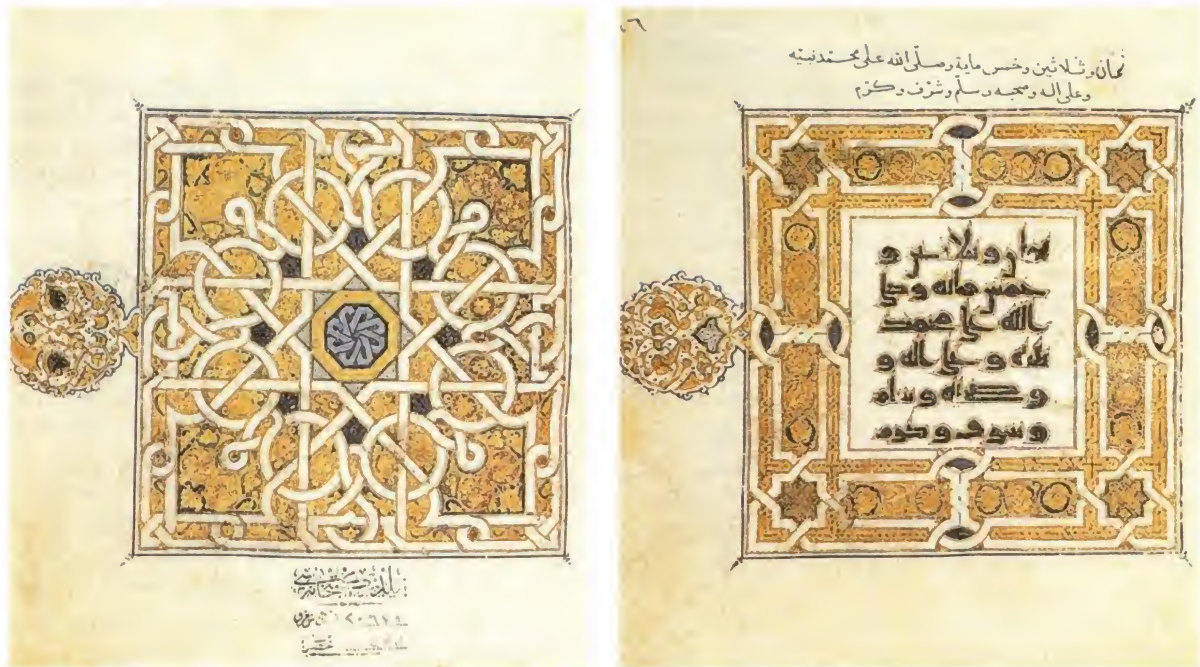 ٦
ثمان وثلاثين وخمس ماية وصلى الله على محمد نبيه
وعلى اله وصحبه وسلم وشرف وكرم
ثمان وثلاثين و
خمس مائة وصلى
الله على محمد
نبيه وعلى اله و
وصحبه وسلم
وشرف وكرم